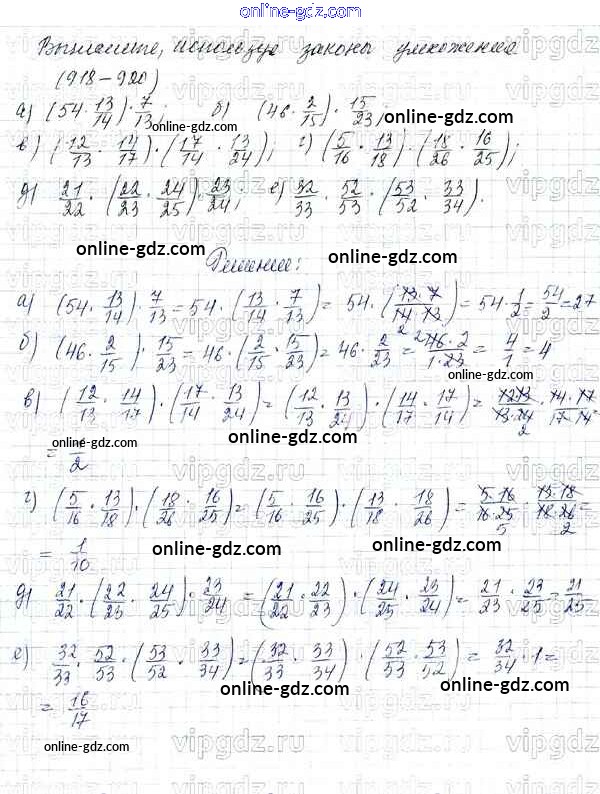 online-gdz.com
Вычислите, используя законы умножения
(918-920)
а) (54 · 13/14) · 7/13; б) (46 · 2/15) · 15/23;
online-gdz.com
в) (12/13 · 14/17) · (17/14 · 13/24); г) (5/16 · 13/18) · (18/26 · 16/25);
д) 21/22 · (22/23 · 24/25) · 23/24; е) 32/33 · 52/53 · (53/52 · 33/34).
online-gdz.com online-gdz.com
Решение:
а) (54 · 13/14) · 7/13 = 54 · (13/14 · 7/13) = 54 · (13 · 7/14 · 13) = 54 · 1/2 = 54/2 = 27
online-gdz.com online-gdz.com
б) (46 · 2/15) · 15/23 = 46 · (2/15 · 15/23) = 46 · 2/23 = 46 · 2/1 · 23 = 4/1 = 4
online-gdz.com
в) (12/13 · 14/17) · (17/14 · 13/24) = (12/13 · 13/24) · (14/17 · 17/14) = 12 · 13/13 · 24 · 14 · 17/17 · 14 =
online-gdz.com online-gdz.com
= 1/2
г) (5/16 · 13/18) · (18/26 · 16/25) = (5/16 · 16/25) · (13/18 · 18/26) = 5 · 16/16 · 25 · 13 · 18/18 · 26 =
= 1/10
online-gdz.com online-gdz.com
д) 21/22 · (22/23 · 24/25) · 23/24 = (21/22 · 22/23) · (24/25 · 23/24) = 21/23 · 23/25 = 21/25
online-gdz.com online-gdz.com
е) 32/33 · 52/53 · (53/52 · 33/34) = (32/33 · 33/34) · (52/53 · 53/52) = 32/34 · 1 =
online-gdz.com online-gdz.com
= 16/17
online-gdz.com
vipgdz.ru